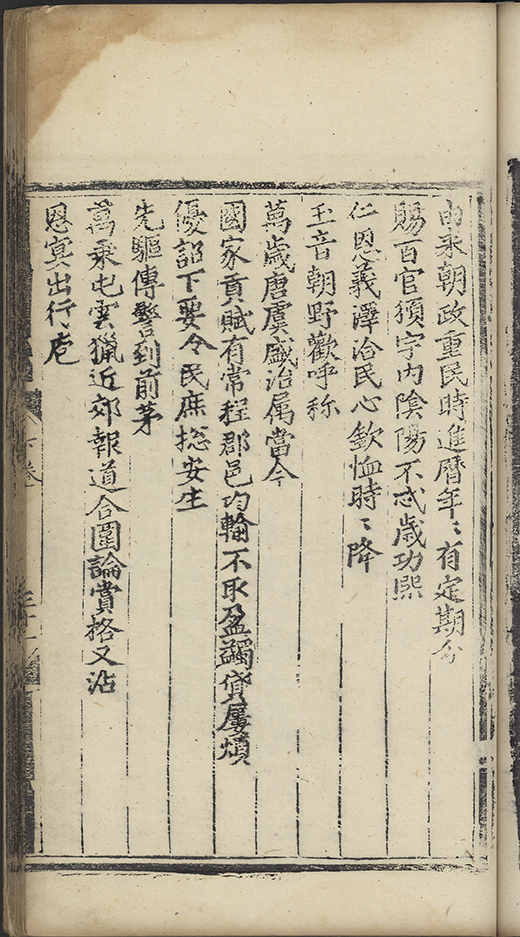 由來朝政重民時進曆年〻有定期分
賜百官頒宇内陰陽不忒歳功熙
仁恩義澤洽民心欽恤時〻降
玉音朝野歡呼称
萬歳唐虞盛治属當今
國家貢賦有常程郡邑均輸不取盈蠲貸屢煩
優詔下要令民庶捴安生
先驅傳警到前茅
萬乘屯雲獵近郊報道合圍論賞格又沾
恩㝠出行〻庖
下卷